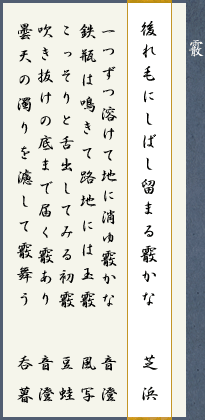 霰
後れ毛にしばし留まる霰かな 芝浜
一つずつ溶けて地に消ゆ霰かな 音澄
鉄瓶は鳴きて路地には玉霰 風写
こっそりと舌出してみる初霰 豆蛙
吹き抜けの底まで届く霰あり 音澄
曇天の濁りを濾して霰舞う 呑暮